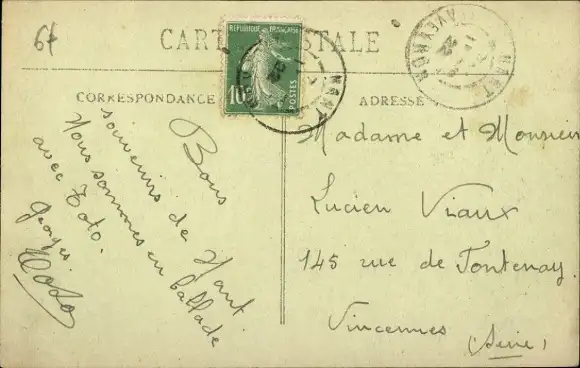 67
CARTE POSTALE
REPUBLIQUE FRANÇAISE
10c
POSTES
NANT
NANT
AVEYRON
CORRESPONDANCE
ADRESSE
Bons
souvenirs de Nant
Nous sommes en ballade
avec Toto.
Georges
Madame et Monsieur
Lucien Viaux
145 rue de Fontenay.
Vincennes
(Seine)